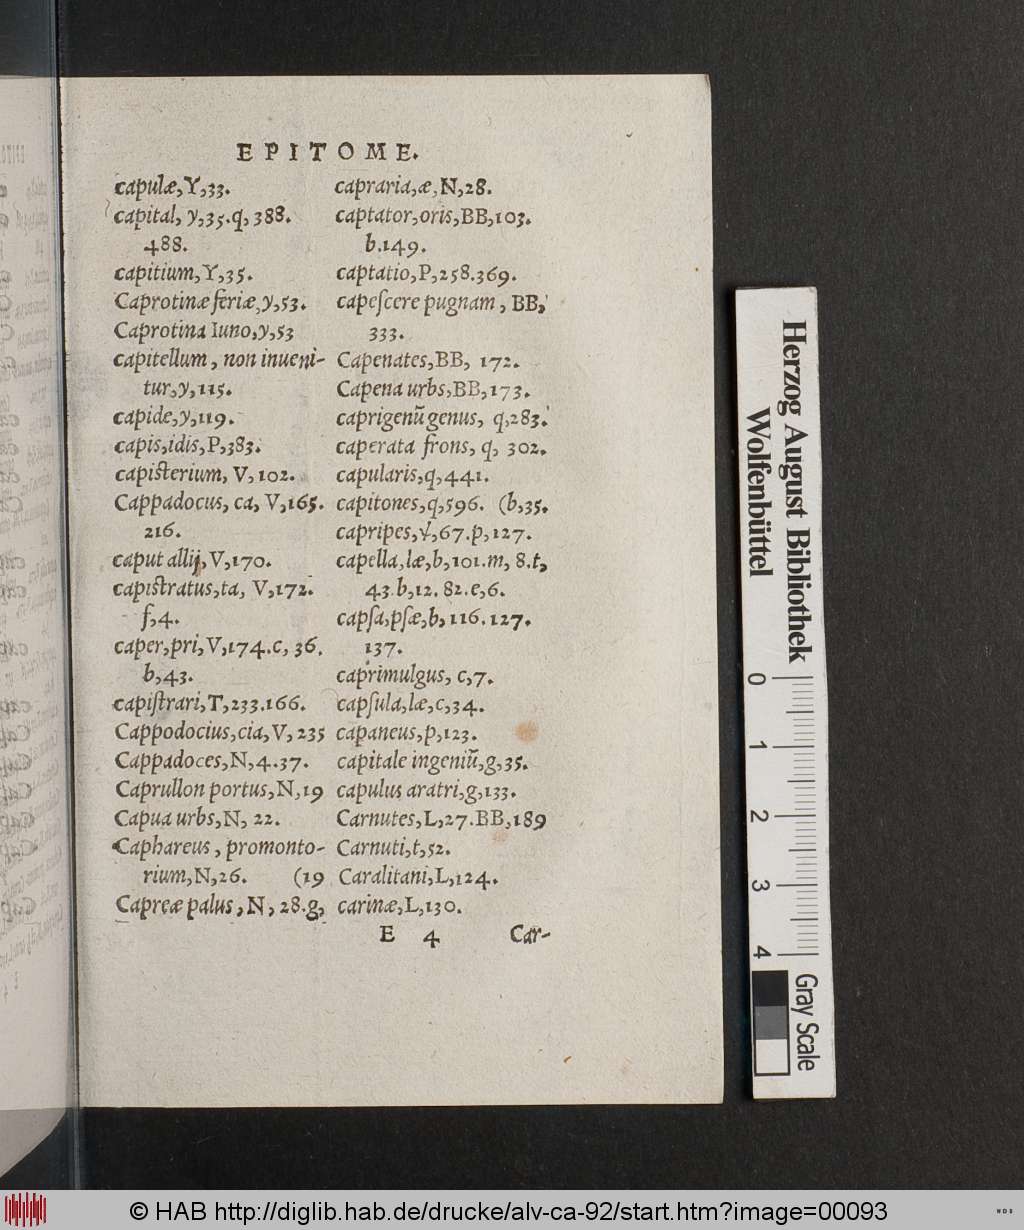 EPITOME.
capulæ,Y,33.
capital, y,35.q,388.
488.
capitium,Y,35.
Caprotinæ feriæ,y,53.
Caprotina Iuno,y,53
capitellum, non inueni-
tur,y,115.
capide,y,119.
capis,idis,P,383.
capisterium, V,102.
Cappadocus, ca, V,165.
216.
caput allij,V,170.
capistratus,ta, V,172.
f,4.
caper,pri,V,174.c, 36.
b,43.
capiſtrari,T,233.166.
Cappodocius,cia,V,235
Cappadoces,N,4.37.
Caprullon portus,N,19
Capua urbs,N, 22.
Caphareus, promonto-
rium,N,26. (19
Capreæ palus, N, 28.g,
capraria,æ,N,28.
captator,oris,BB,103.
b.149.
captatio,P,258.369.
capeſcere pugnam, BB,
333.
Capenates,BB, 172.
Capena urbs,BB,173.
caprigenũ genus, q,283.
caperata frons, q, 302.
capularis,q,441.
capitones,q,596. (b,35.
capripes,ψ,67.p,127.
capella,læ,b,101.m, 8.t,
43.b,12. 82.e,6.
capſa,pſæ,b,116.127.
137.
caprimulgus, c,7.
capſula,læ,c,34.
capaneus,p,123.
capitale ingeniũ,g,35.
capulus aratri,g,133.
Carnutes,L,27.BB,189
Carnuti,t,52.
Caralitani,L,124.
carinæ,L,130.
E 4 Car-
Herzog August Bibliothek
Wolfenbüttel
0 1 2 3 4
Gray Scale
© HAB http://diglib.hab.de/drucke/alv-ca-92/start.htm?image=00093
WDB